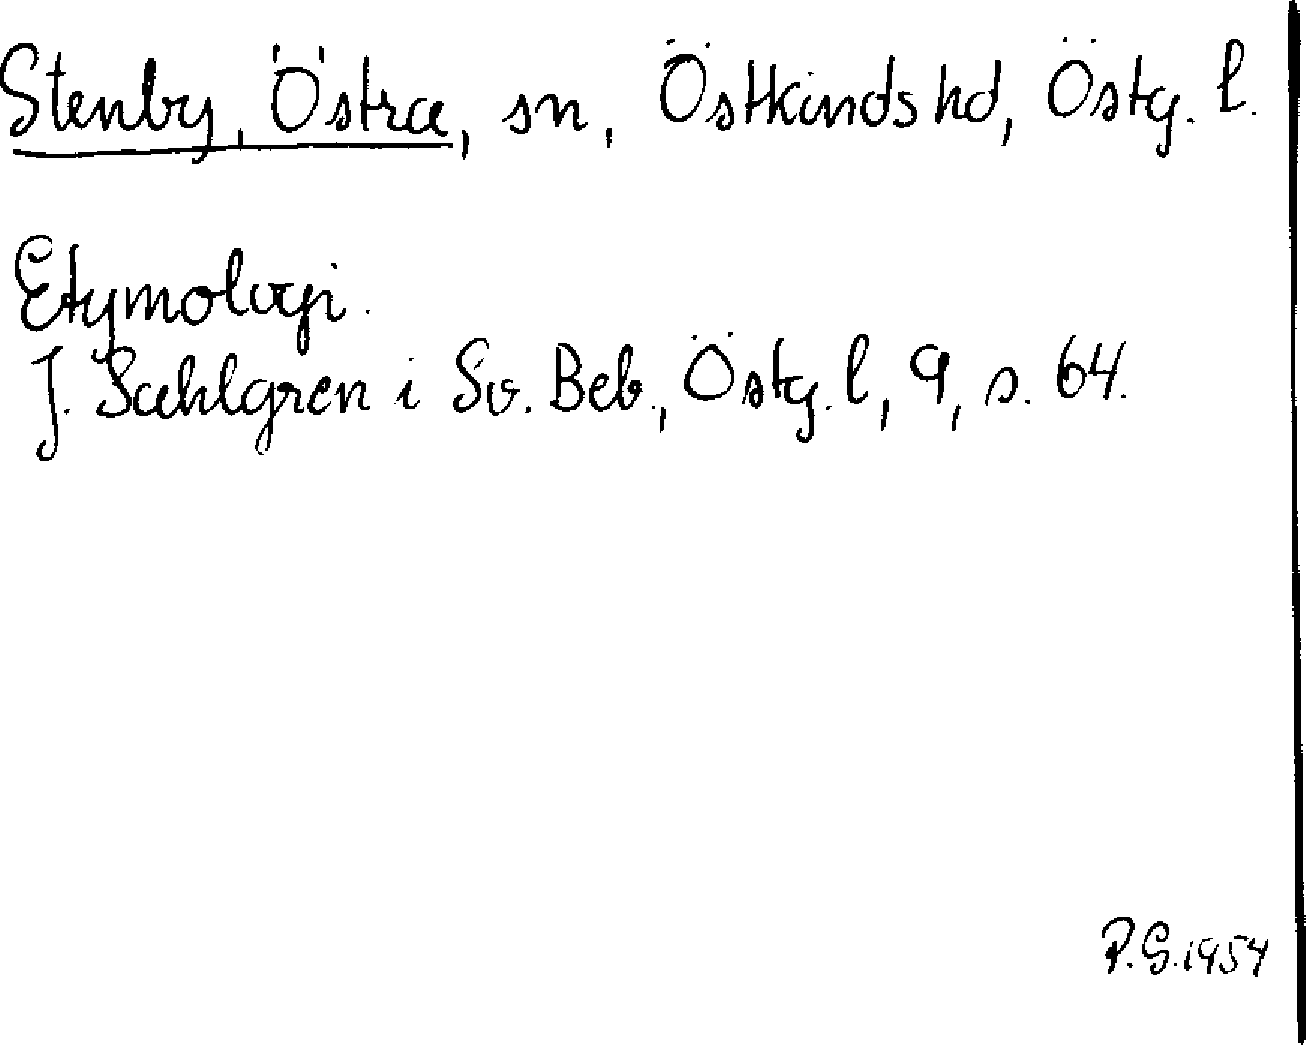 Stenby, Östra, sn, Östkinds hd, Östg. l.
Etymologi.
J. Sahlgren i Sv. Beb., Östg. l, 9, s. 64.
P.G.1954